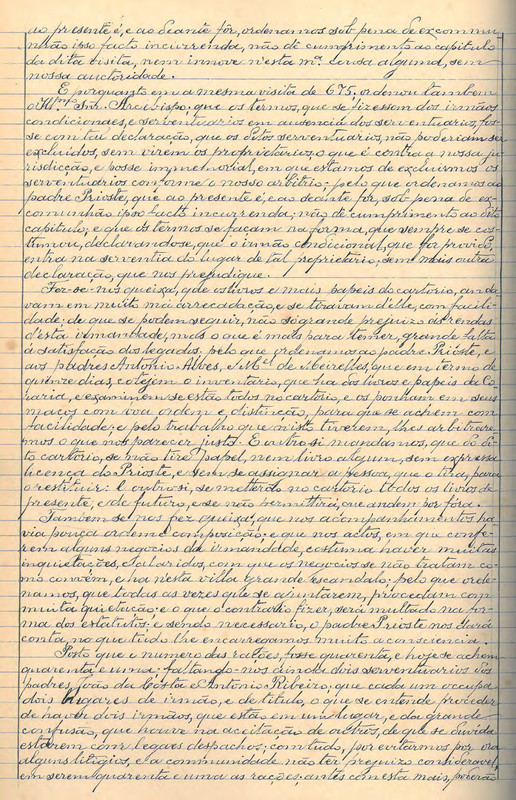 ao presente é, e ao deante fôr, ordenamos sob pena de excommu-
nhão ipso facto incurrenda, não dê cumprimento ao capitulo
da dita visita, nem innove n'esta m.ª cousa alguma, sem
nossa auctoridade.
E porquanto em a mesma visita de 675, ordenou tambem
o Ill.mo Snr. Arcebispo: que os termos, que se fizessem dos irmãos
condicionaes, e serventuarios em ausencia dos serventuarios, fos-
se com tal declaração, que os ditos serventuarios, não poderiam ser
excluidos, sem virem os proprietarios, o que é contra a nossa ju-
risdicção, e posse immemorial, em que estamos de excluirmos os
serventuarios conforme o nosso arbitrio: pelo que ordenamos ao
padre Prioste, que ao presente é, e ao deante fôr, sob pena de ex-
comunhão ipso facto incurrenda, não dê cumprimento ao dito
capitulo, e que os termos se façam na forma, que sempre se cos-
tumou, declarando-se, que o irmão condicional, que fôr provido,
entra na serventia do lugar de tal proprietario, sem mais outra
declaração, que nos prejudique.
Fez-se-nos queixa, que os livros e mais papeis do cartorio, anda-
vam em muito má arrecadação, e se tiravam d'elle, com facili-
dade: de que se podem seguir, não só grande prejuizo ás rendas
d'esta irmandade, mas o que é mais para temer, grande falta
á satisfação dos legados, pelo que ordenamos ao padre Prioste, e
aos padres Antonio Alves, e M.el de Meirelles, que em termo de
quinze dias, cotejem o inventario, que ha dos livros e papeis da Co-
raria, e examinem se estão todos no cartorio, e os ponham em seus
maços com boa ordem e distinção, para que se achem com
facilidade; e pelo trabalho que n'isto tiverem, lhes arbitrare-
mos o que nos parecer justo. E outro si mandamos, que do di-
to cartorio, se não tire papel, nem livro algum, sem expressa
licença do Prioste, e sem se assignar a pessoa, que o tira, para
o restituir: E outro si, se metterão no cartorio todos os livros de
presente, e do futuro, e se não permittirá, que andem por fóra.
Tambem se nos fez queixa, que nos acompanhamentos ha-
via pouça ordem e composição; e que nos actos, em que confe-
rem alguns negocios da irmandade, costuma haver muitas
inquietações, e alaridos, com que os negocios se não tratam co-
mo convém, e ha nesta villa grande escandalo: pelo que orde-
namos, que todas as vezes que se ajuntarem, procedam com
muita quietação: e o que o contrario fizer, será multado na for-
ma dos estatutos: e sendo necessario, o padre Prioste nos dará
conta, no que tudo lhe encarregamos muito a consciencia.
Posto que o numero das rações, fosse quarenta, e hoje se achem
quarenta e uma: faltando-nos ainda dois serventuarios dos
padres, João da Costa e Antonio Ribeiro; que cada um occupa
dois lugares de irmão, e de titulo, o que se entende proceder
de haver dois irmãos, que estão em um lugar, e da grande
confusão, que houve na aceitação de outros, de que se duvida
estarem com legaes despachos; com tudo, por evitarmos por ora
alguns litigios, e a communidade não ter prejuizo consideravel,
em serem quarenta e uma as rações; antes com esta mais, poderão